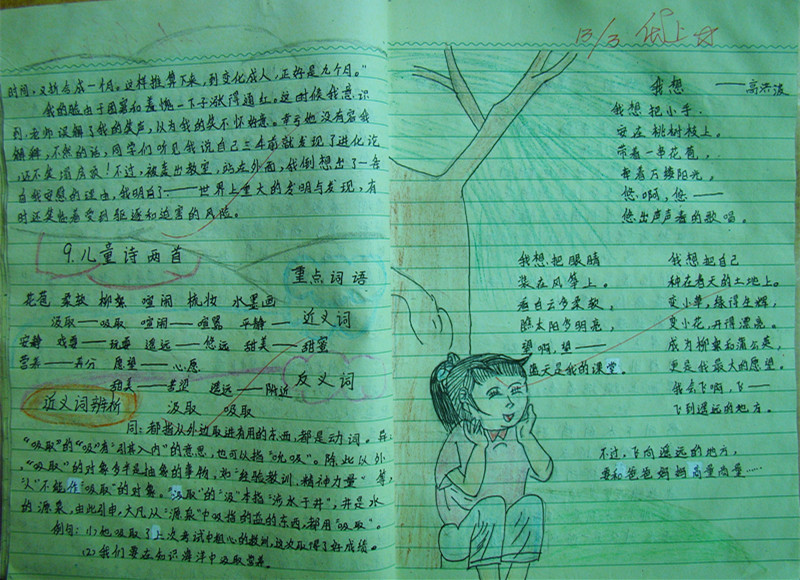 时间，又折合成一个月。这样推算下来，到变化成人，正好是九个月。"
我的脸由于困窘和羞愧一下子涨得通红。这时候我意识
到，老师误解了我的笑声，以为我的笑不怀好意。幸亏他没有容我
解释，不然的话，同学们听见我说自己三年前就发现了进化论
还不笑塌房顶！不过，被轰出教室，站在外面，我倒想出了一条
自我安慰的理由，我明白了——世界上重大的发明与发现，有
时还是面临着受到驱逐和迫害的风险。
9.儿童诗两首
重点词语
花苞 柔软 柳絮 喧闹 梳妆 水墨画
近义词
汲取——吸取 喧闹——喧嚣 平静——
安静 戏耍——玩耍 遥远——悠远 甜美——甜蜜
营养——养分 愿望——心愿
反义词
甜美—— 遥远——附近
近义词辨析
汲取 吸取
同：都指从外边取进有用的东西，都是动词。异：
"吸取"的"吸"有"引其入内"的意思，也可以指"吮吸"。除此以外
，"吸取"的对象多半是抽象的事物，如"经验教训、精神力量"等，
"人"不能作"吸取"的对象。"汲取"的"汲"本指"涉水于井"，井是水
的源泉，由此引申，大凡从"源泉"中吸 有益的东西，都用"吸取"。
例句：(1)他吸取了上次考试中粗心的教训，这次取得了好成绩。
(2)我们要在知识海洋中吸取营养。
13/3
我想
——高洪波
我想把小手
安在桃树枝上。
带着一串花苞，
牵着万缕阳光，
悠啊，悠——
悠出声声春的歌唱。
我想把眼睛
装在风筝上。
看白云多柔软，
瞧太阳多明亮，
望啊，望——
蓝天是我的课堂。
我想把自己
种在春天的土地上。
变小草，绿得生辉，
变小花，开得漂亮。
成为柳絮和蒲公英，
更是我最大的愿望。
我会飞啊，飞——
飞到遥远的地方。
不过，飞向遥远的地方，
要和爸爸妈妈商量商量……